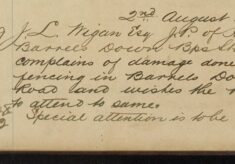 2nd August
J. L. Wigan Esq J.P. of
Barrels Down Bps
complains of damage done
fencing in Barrels Do
Road and wishes the
to attend to same.
Special attention is to be